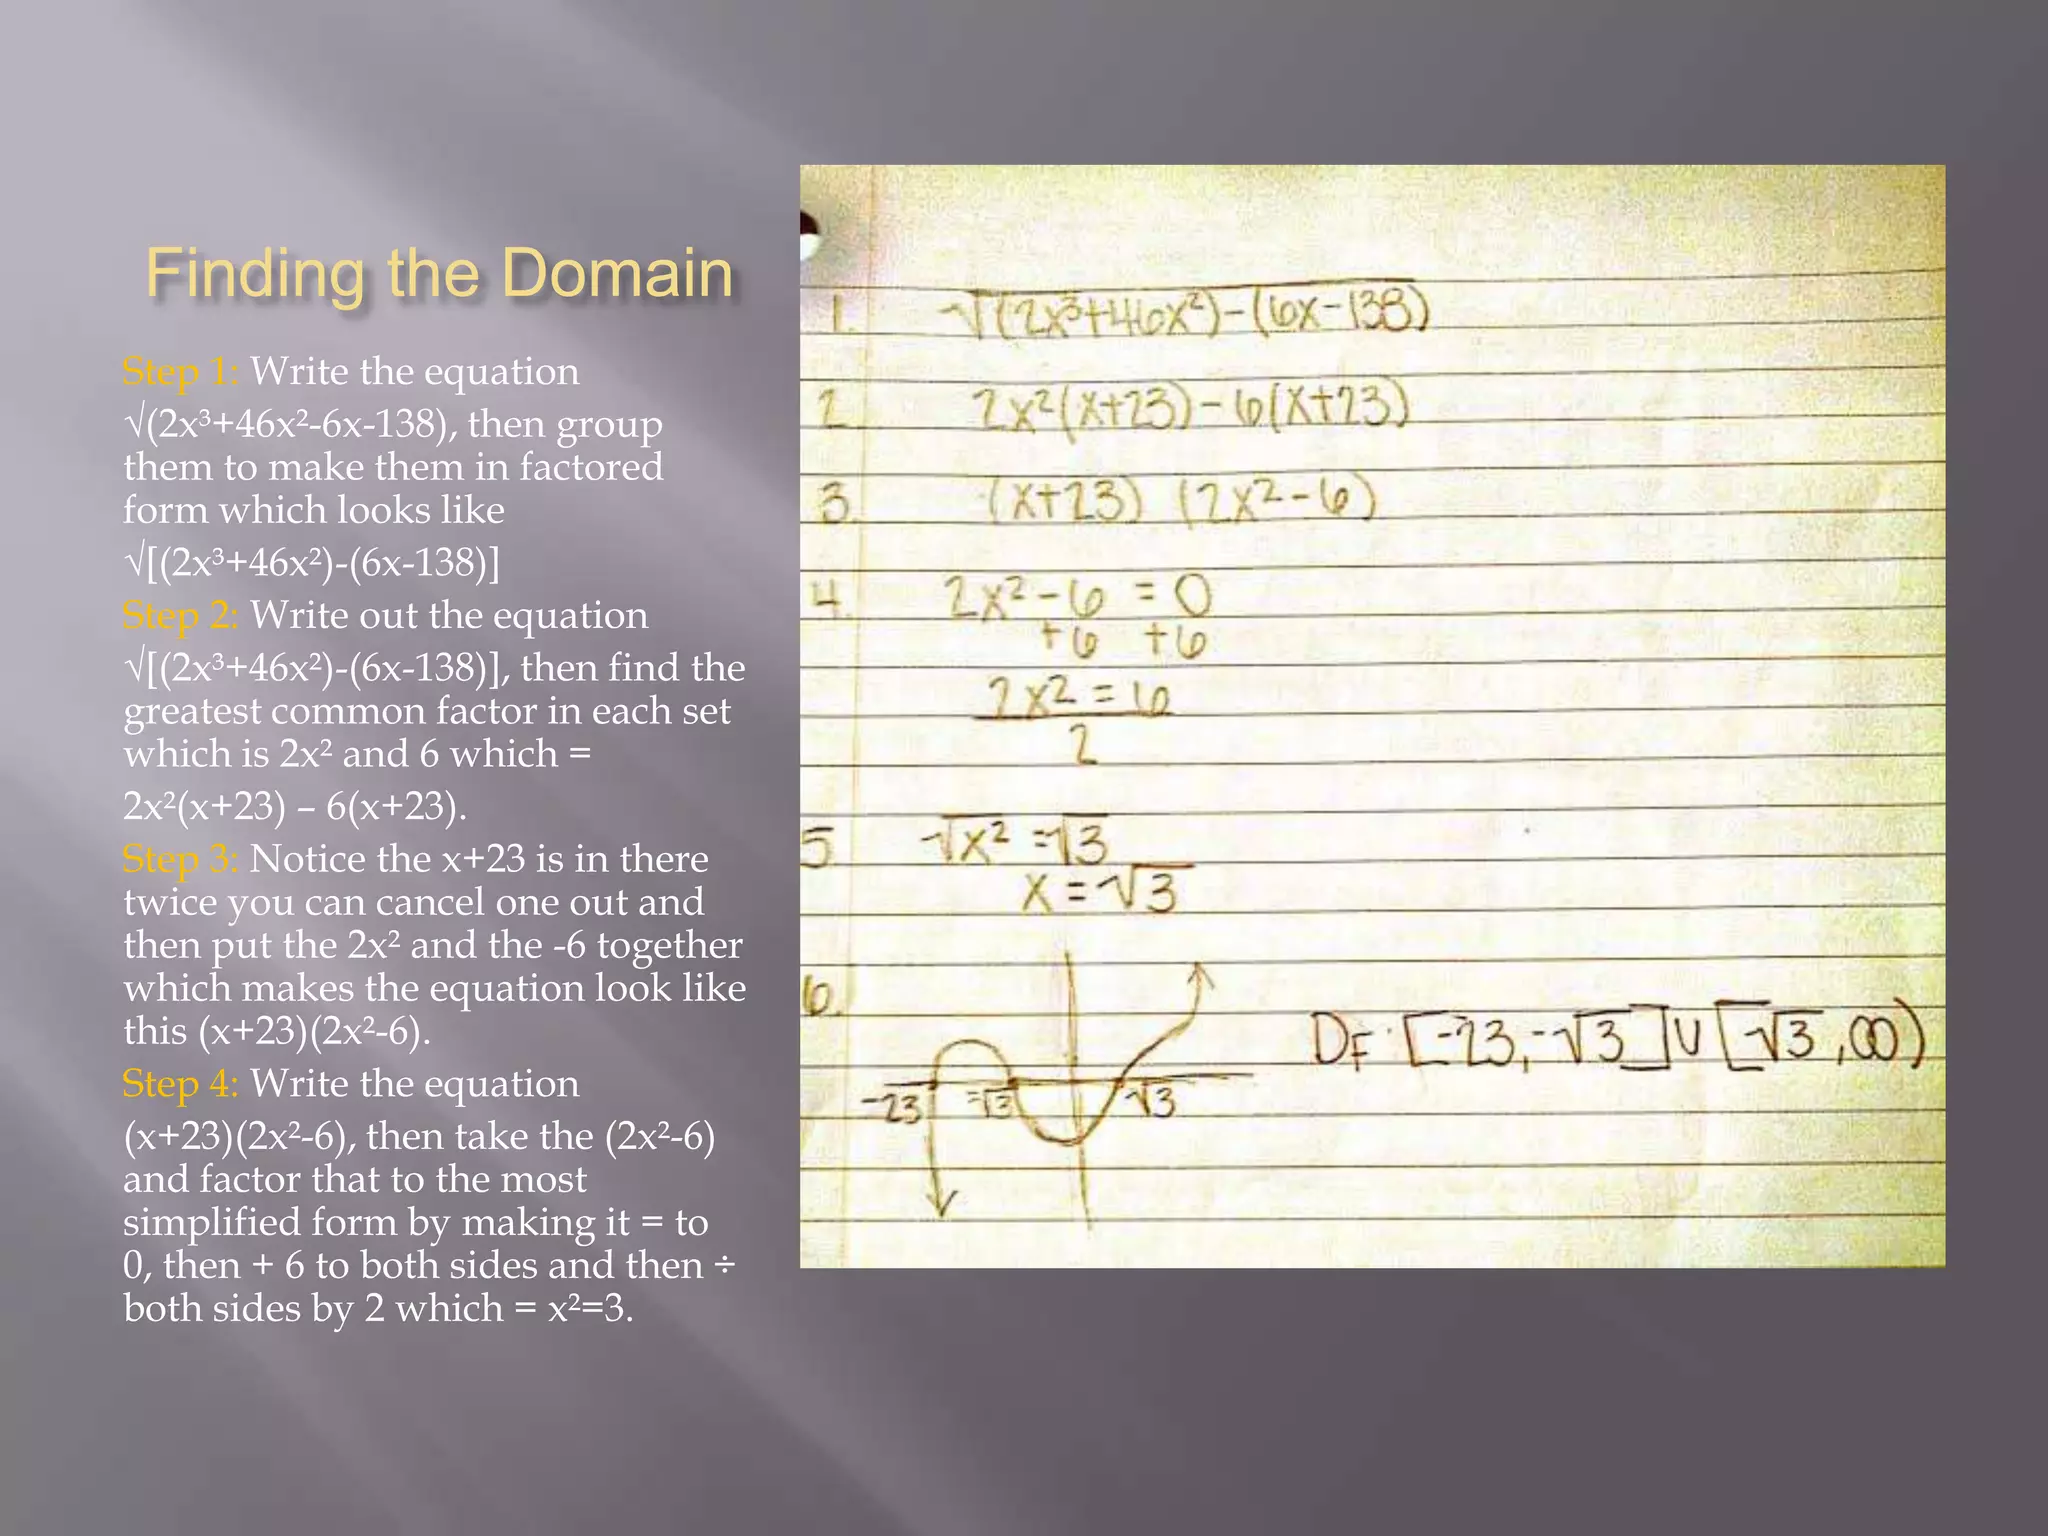 Finding the Domain
Step 1: Write the equation
√(2x³+46x²-6x-138), then group
them to make them in factored
form which looks like
√[(2x³+46x²)-(6x-138)]
Step 2: Write out the equation
√[(2x³+46x²)-(6x-138)], then find the
greatest common factor in each set
which is 2x² and 6 which =
2x²(x+23) – 6(x+23).
Step 3: Notice the x+23 is in there
twice you can cancel one out and
then put the 2x² and the -6 together
which makes the equation look like
this (x+23)(2x²-6).
Step 4: Write the equation
(x+23)(2x²-6), then take the (2x²-6)
and factor that to the most
simplified form by making it = to
0, then + 6 to both sides and then ÷
both sides by 2 which = x²=3.
1. √(2x³+46x²)-(6x-138)
2. 2x²(x+23)-6(x+23)
3. (x+23) (2x²-6)
4. 2x²-6 = 0
+6 +6
2x² = 6
2
5. √x² = √3
x = √3
6.
-23 -√3 √3
DF: [-23,-√3]U[√3,∞)